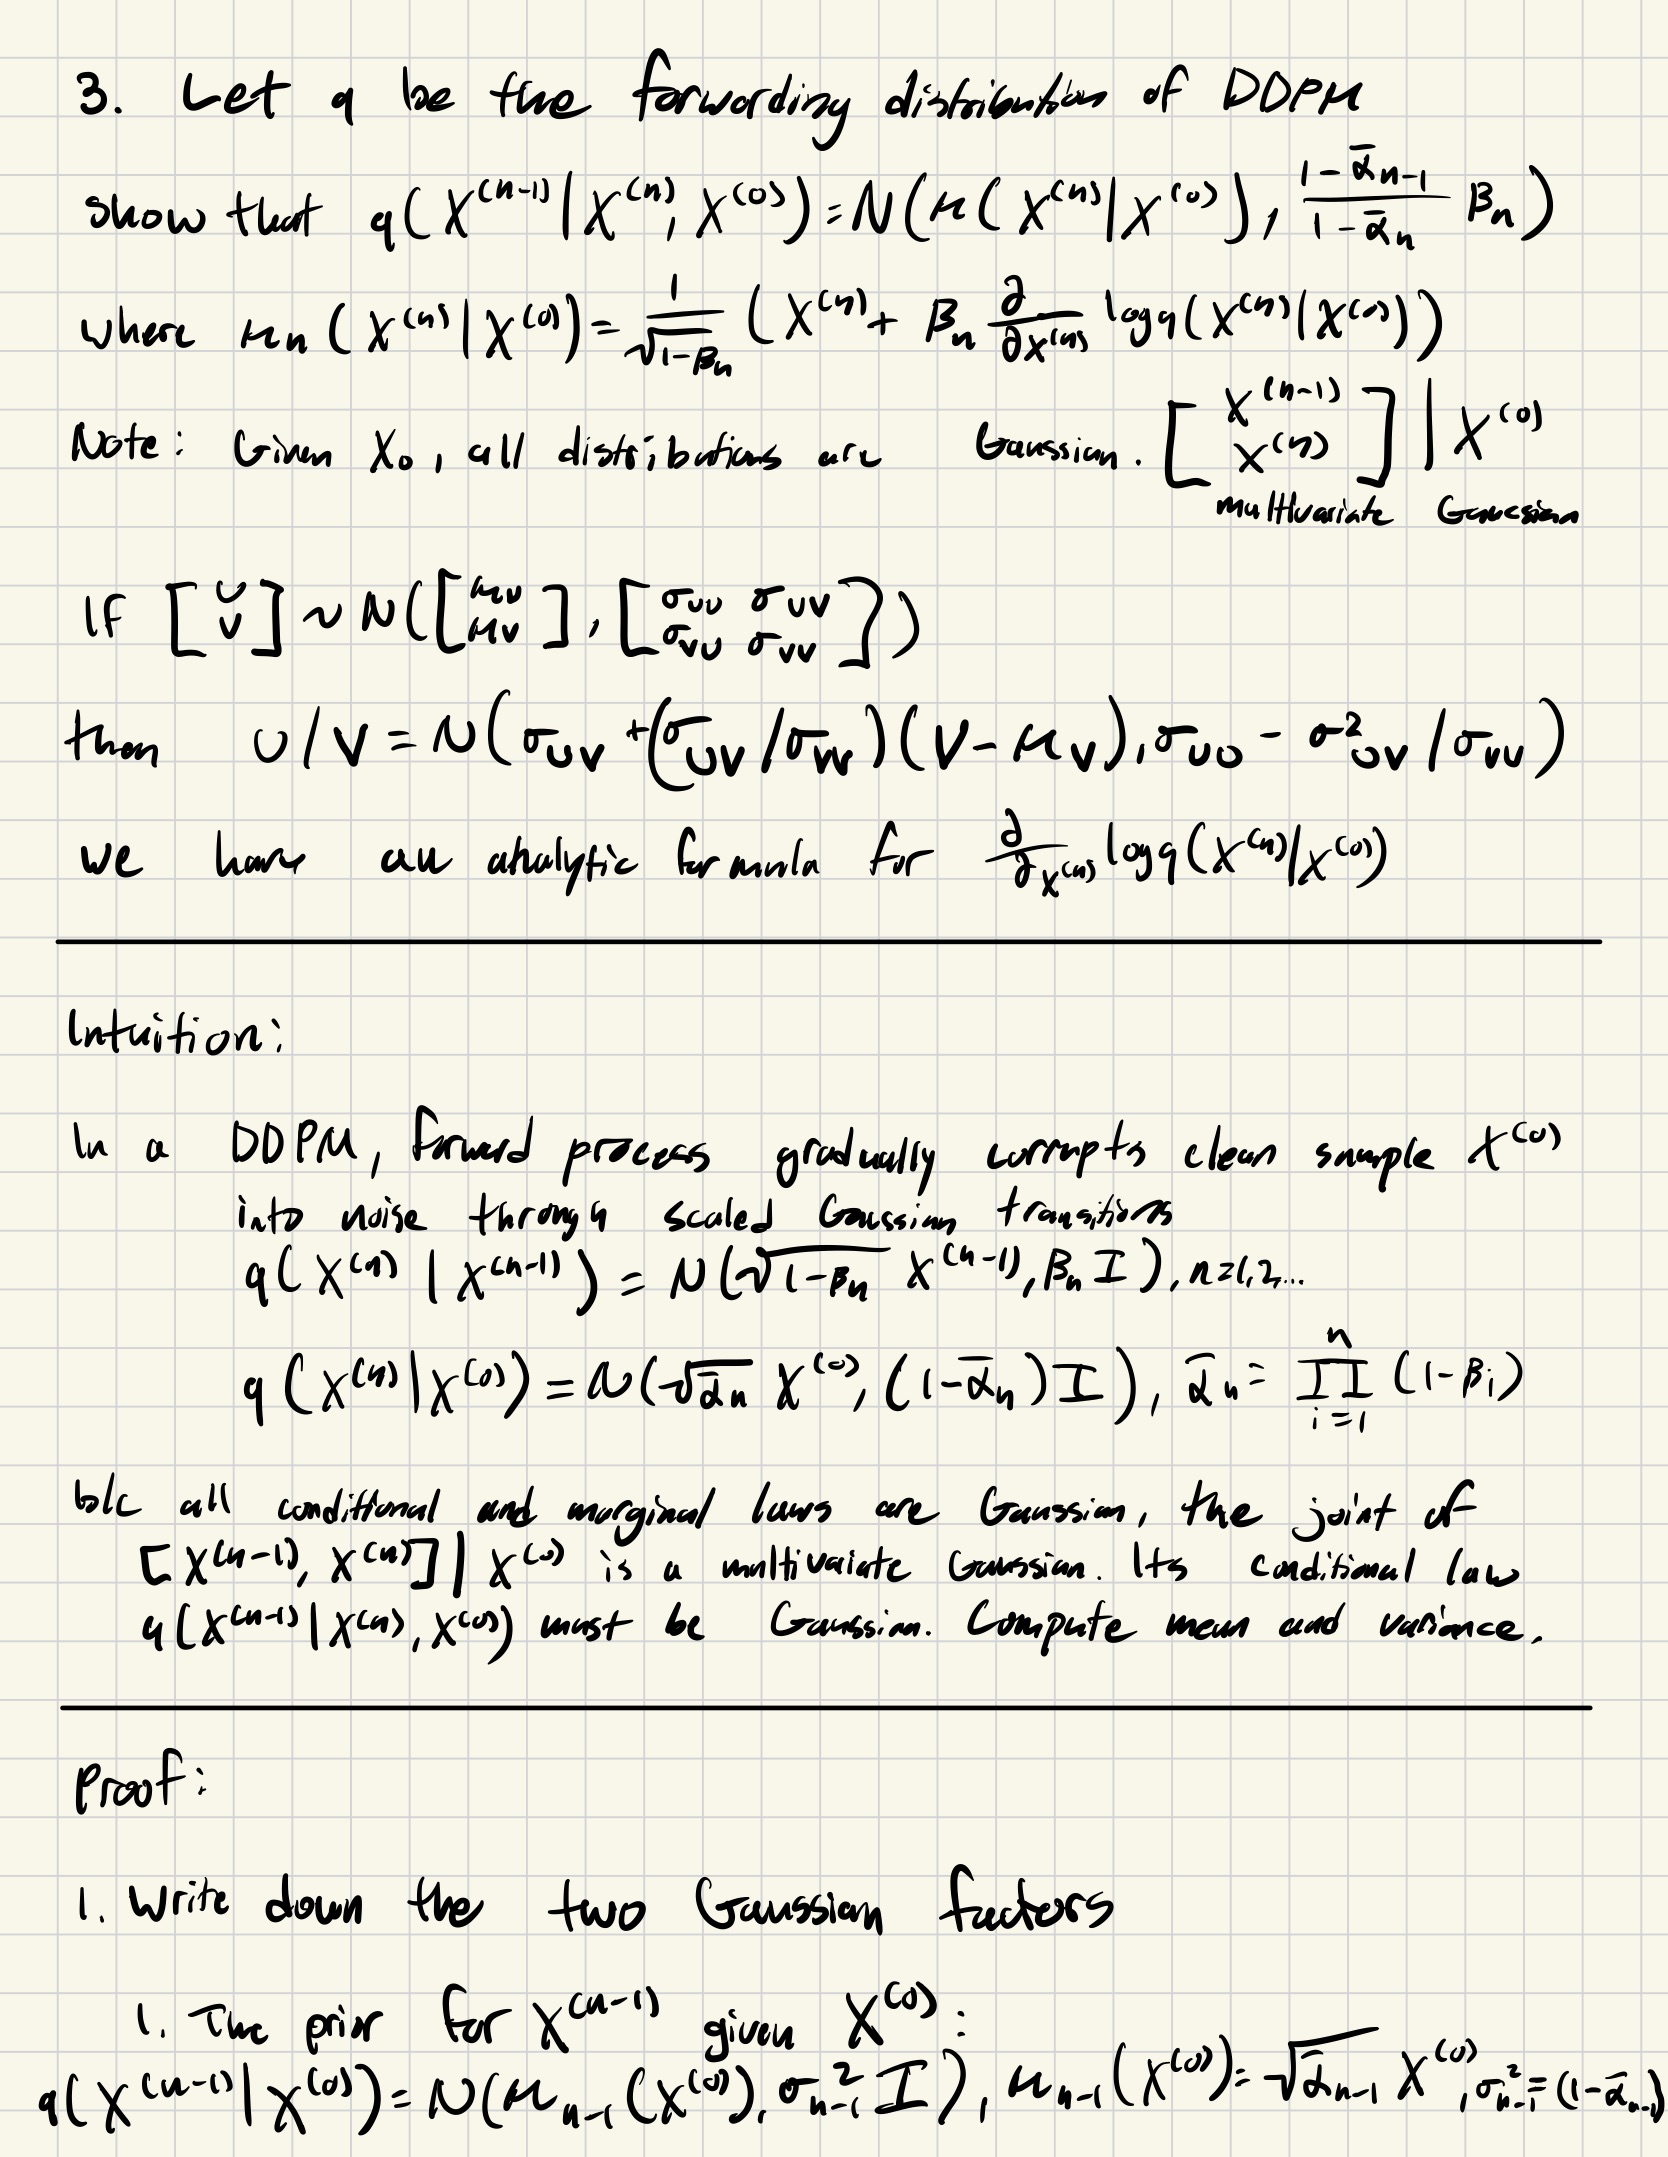 3. Let q be the forwarding distribution of DDPM
show that q(X^(n-1) | X^(n), X^(0)) = N(μ(X^(n) | X^(0)), (1-ᾱ_{n-1})/(1-ᾱ_n) β_n)
where μ_n(X^(n) | X^(0)) = 1/√(1-β_n) (X^(n) + β_n ∂/∂X^(n) log q(X^(n) | X^(0)))
Note: Given X_0, all distributions are Gaussian. [X^(n-1) X^(n)] | X^(0)
multivariate Gaussian
If [U V] ~ N([μ_U μ_V], [σ_UU σ_UV σ_VU σ_VV])
then U/V = N(σ_UV + (σ_UV/σ_VV)(V-μ_V), σ_UU - σ²_UV/σ_VV)
we have an analytic formula for ∂/∂X^(n) log q(X^(n)|X^(0))
Intuition:
In a DDPM, forward process gradually corrupts clean sample X^(0)
into noise through scaled Gaussian transitions
q(X^(n) | X^(n-1)) = N(√(1-β_n) X^(n-1), β_n I), n=1,2,...
q(X^(n)|X^(0)) = N(√ᾱ_n X^(0), (1-ᾱ_n)I), ᾱ_n = ∏_{i=1}^n (1-β_i)
b/c all conditional and marginal laws are Gaussian, the joint of
[X^(n-1), X^(n)] | X^(0) is a multivariate Gaussian. Its conditional law
q(X^(n-1) | X^(n), X^(0)) must be Gaussian. Compute mean and variance.
Proof:
1. Write down the two Gaussian factors
1. The prior for X^(n-1) given X^(0):
q(X^(n-1) | X^(0)) = N(μ_{n-1}(X^(0)), σ²_{n-1} I), μ_{n-1}(X^(0)) = √ᾱ_{n-1} X^(0), σ²_{n-1} = (1-ᾱ_{n-1})